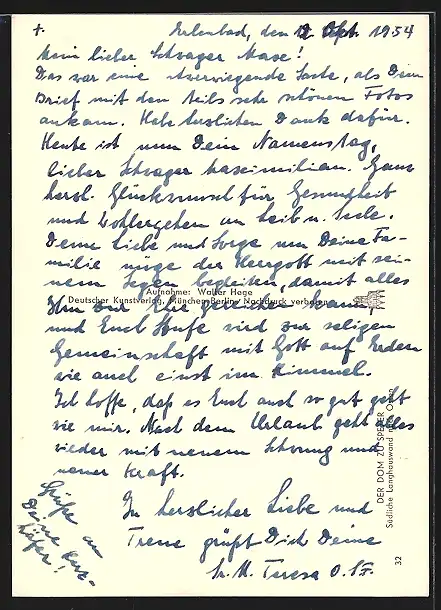 +.
Erlenbad, den 12. Okt. 1954
Mein lieber Schwager Maxe!
Das war eine überwiegende Sache, als Dein
Brief mit den teils sehr schönen Fotos
ankam. Hab herzlichen Dank dafür.
Heute ist nun Dein Namenstag,
lieber Schwager Maximilian. Ganz
herzl. Glückwunsch für Gesundheit
und Wohlergehen an Leib u. Seele.
Deine Liebe und Sorge um Deine Fa-
milie möge der Herrgott mit sei-
nem Segen begleiten, damit alles
Aufnahme: Walter Hege
Deutscher Kunstverlag, München-Berlin / Nachdruck verboten
Ihm zur Ehre gereichen kann,
und Euch Stufe wird zur seligen
Gemeinschaft mit Gott auf Erden
wie auch einst im Himmel.
Ich hoffe, daß es Euch auch so gut geht
wie mir. Nach dem Urlaub geht alles
wieder mit neuem Schwung und
neuer Kraft.
In herzlicher Liebe und
Treue grüßt Dich Deine
Sr. M. Teresa
Grüße an
Deine
DER DOM ZU SPEYER
Südliche Langhauswand nach Osten
32